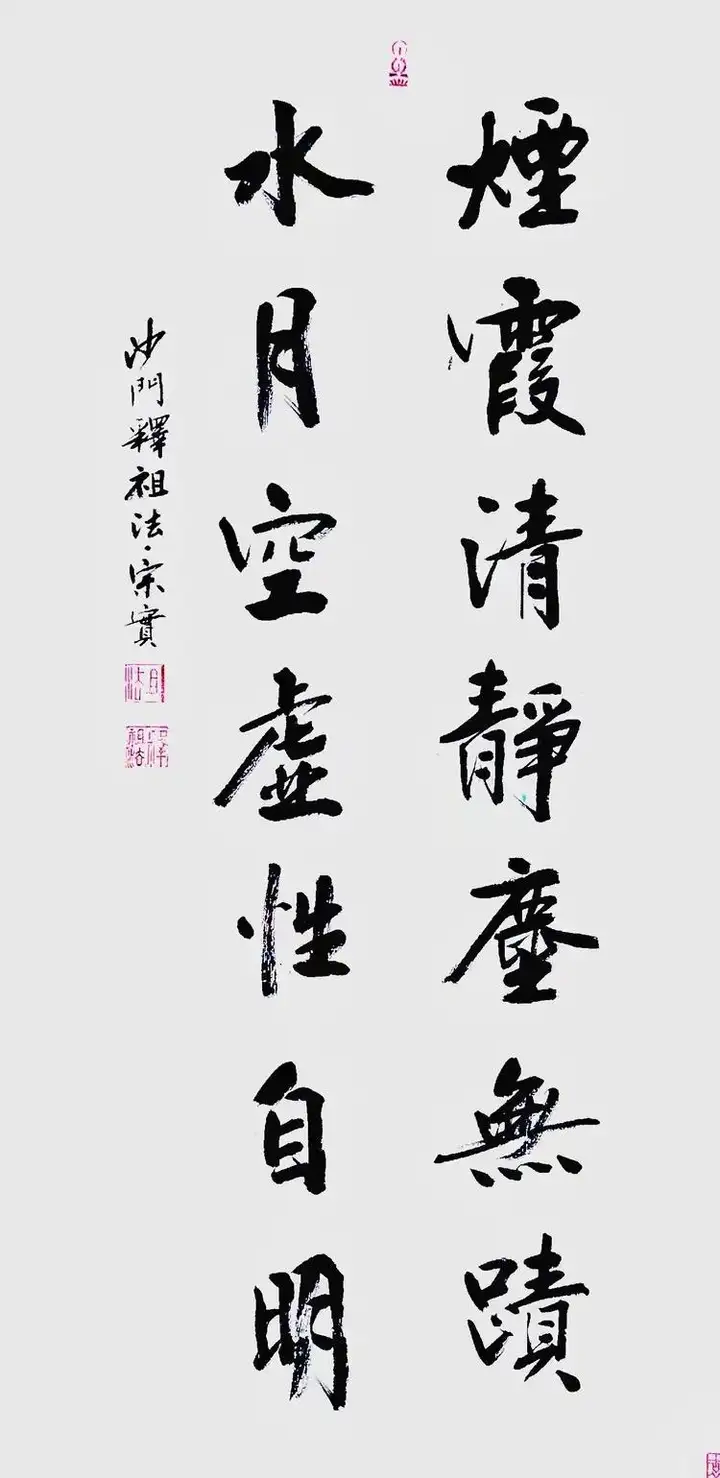 煙霞清靜塵無蹟
水月空虛性自明
沙門釋祖法·宗實